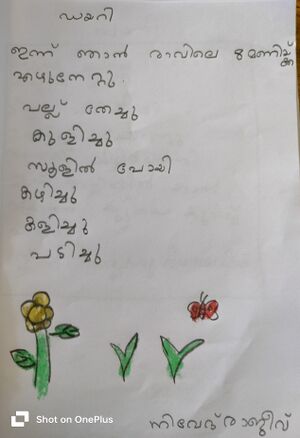 ഡയറി
ഇന്ന് ഞാൻ രാവിലെ 8 മണിയ്ക്ക്
എഴുന്നേറ്റു.
പല്ല് തേച്ചു
കുളിച്ചു
സ്കൂളിൽ പോയി
കഴിച്ചു
കളിച്ചു
പഠിച്ചു
നിവേദ് രാജീവ്
Shot on OnePlus